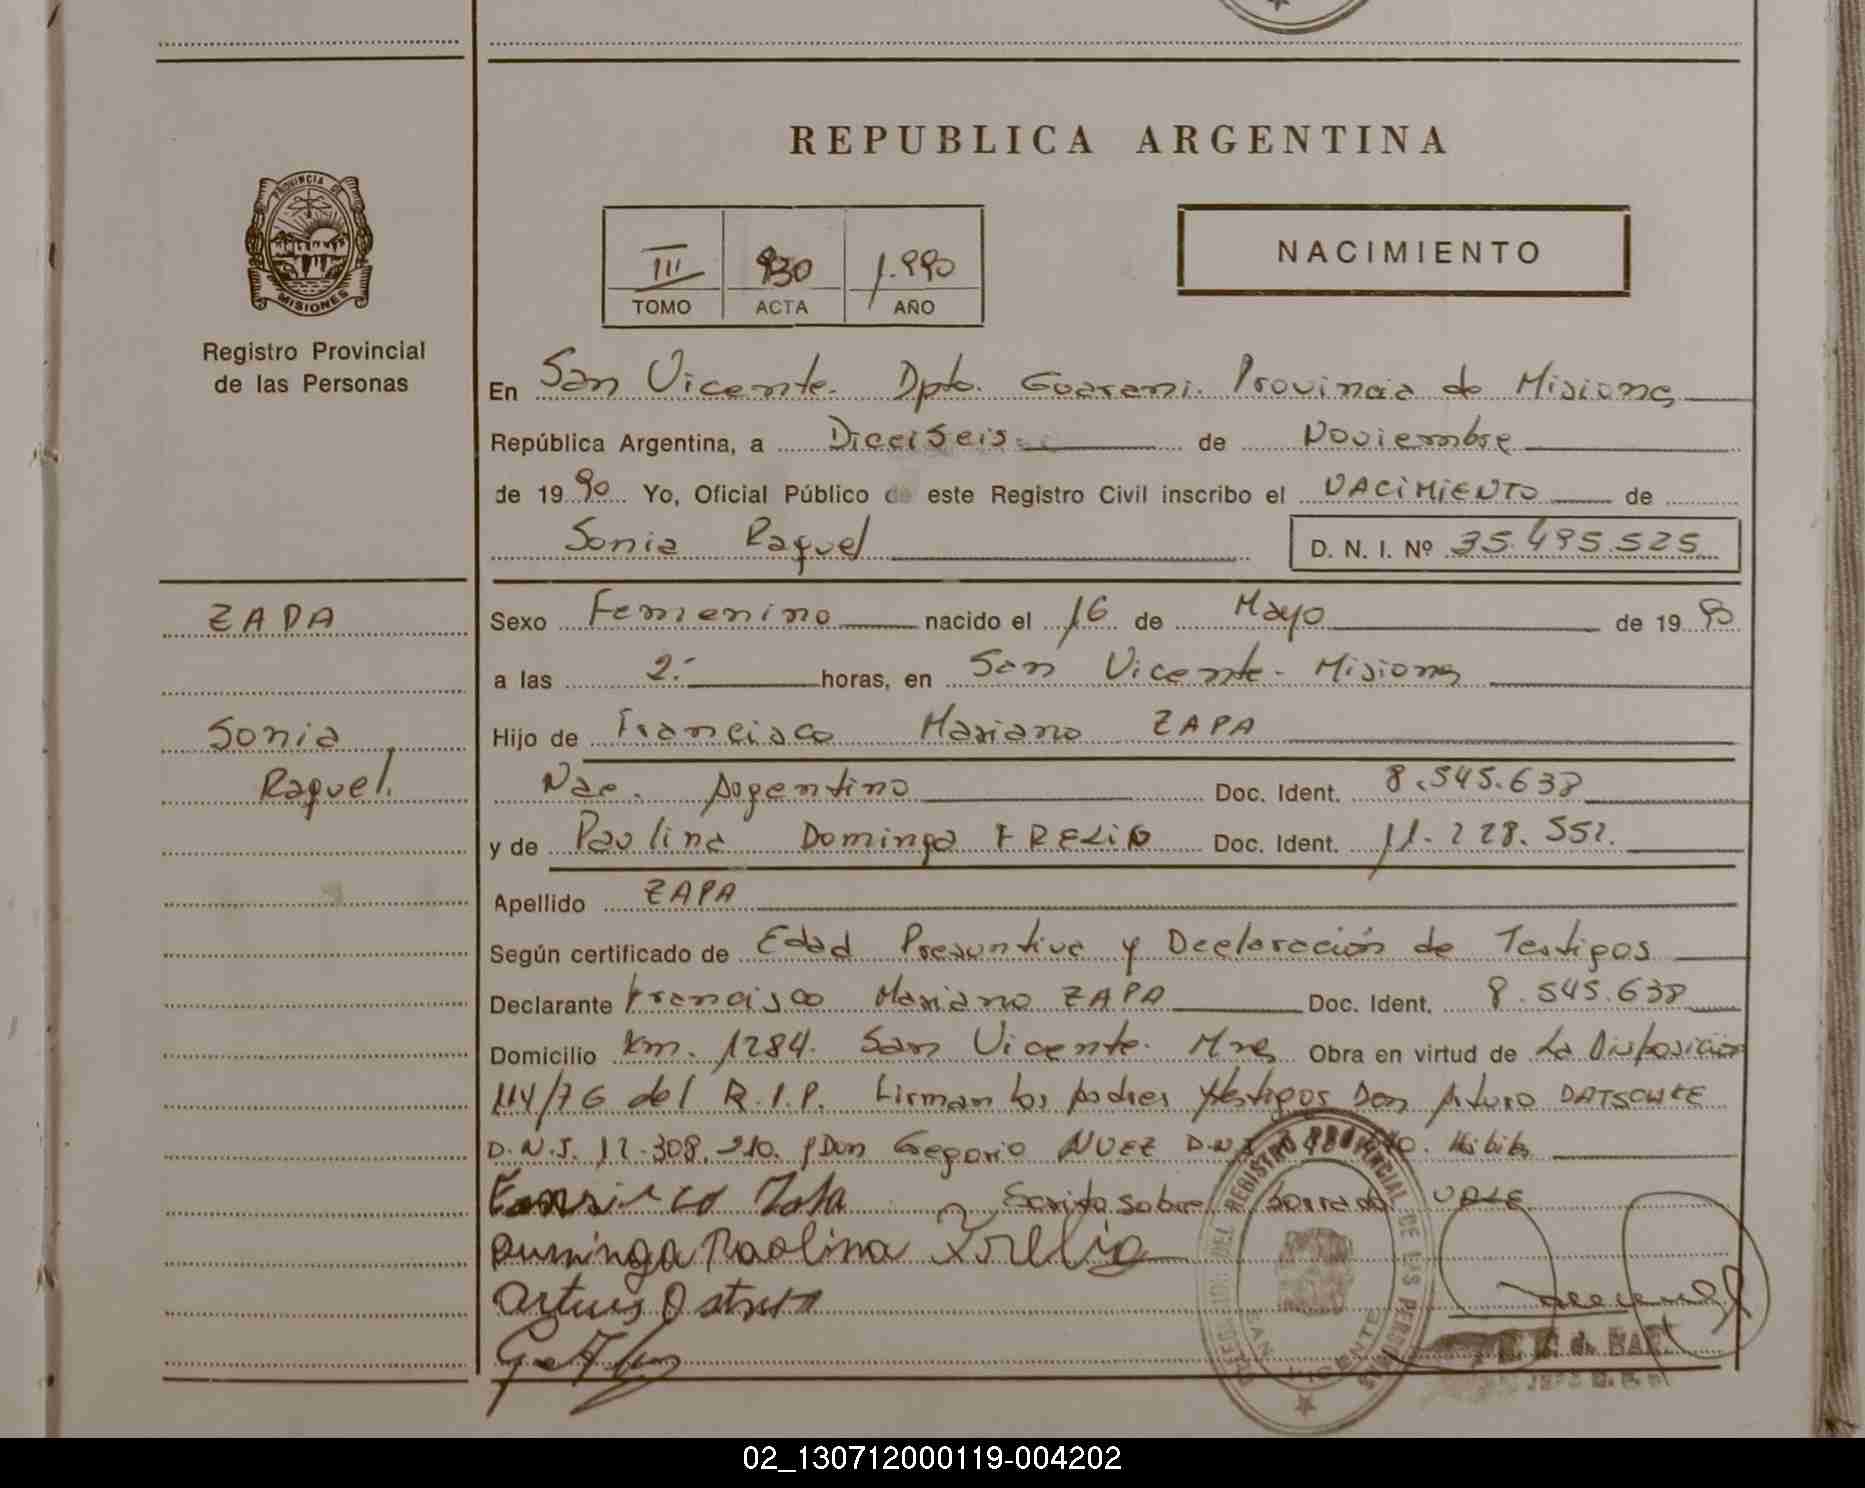 REPUBLICA ARGENTINA
PROVINCIA DE
MISIONES
Registro Provincial
de las Personas
III 930 1.990
TOMO ACTA AÑO
NACIMIENTO
En San Vicente. Dpto. Guarani. Provincia de Misiones
República Argentina, a Dieciseis de Noviembre
de 1990 Yo, Oficial Público de este Registro Civil inscribo el NACIMIENTO de
Sonia Raquel D. N. I. Nº 35.495.525
ZAPA
Sonia
Raquel.
Sexo Femenino nacido el 16 de Mayo de 1990
a las 2.- horas, en San Vicente - Misiones
Hijo de Francisco Mariano ZAPA
Nac. Argentino Doc. Ident. 8.545.638
y de Paulina Dominga FRELIO Doc. Ident. 11.228.552.
Apellido ZAPA
Según certificado de Edad Presuntiva y Declaración de Testigos
Declarante Francisco Mariano ZAPA Doc. Ident. 8.545.638
Domicilio Km. 1284. San Vicente. Mnes Obra en virtud de La Disposición
114/76 del R.I.P. Firman los padres y testigos Don Arturo
D.N.I. 17.308.210. y Don Gregorio NUEZ D.N.I.
Escrito sobre borrado VALE
Dominga Paolina Frelio
Arturo
REGISTRO PROVINCIAL DE LAS PERSONAS
SAN VICENTE
02_130712000119-004202